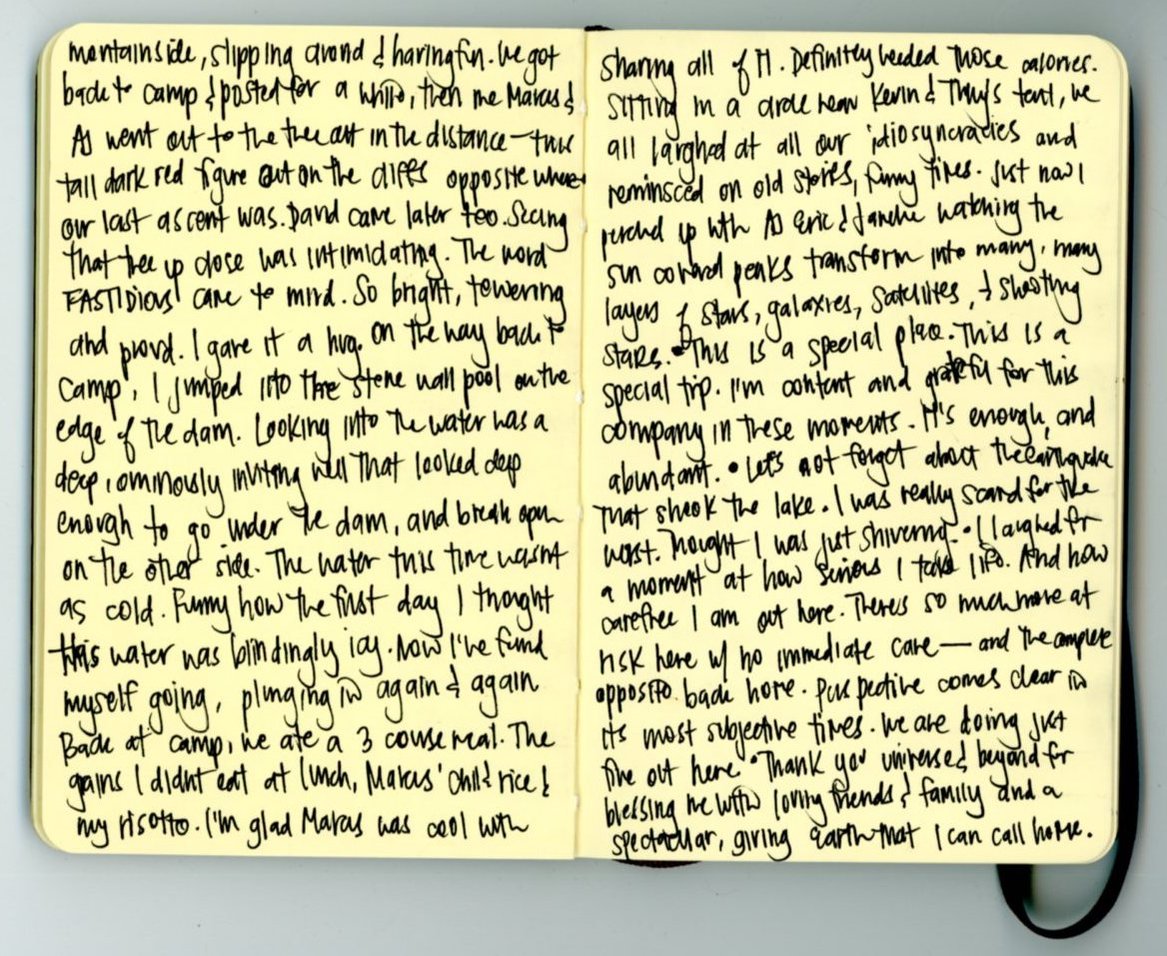 mountainside, slipping around & having fun. We got
back to camp & posted for a while, then me Marcus &
AJ went out to the tree out in the distance — this
tall dark red figure out on the cliffs opposite where
our last ascent was. David came later too. Seeing
that tree up close was intimidating. The word
FASTIDIOUS came to mind. So bright, towering
and proud. I gave it a hug. On the way back to
camp, I jumped into the stone wall pool on the
edge of the dam. Looking into the water was a
deep, ominously inviting well that looked deep
enough to go under the dam, and break open
on the other side. The water this time wasnt
as cold. Funny how the first day I thought
this water was blindingly icy. Now I've fund
myself going, plunging in again & again
Back at camp, we ate a 3 course meal. The
grains I didnt eat at lunch, Marcus' chili & rice &
my risotto. I'm glad Marcus was cool with
sharing all of it. Definitely needed those calories.
Sitting in a circle near Kevin & Thuy's tent, we
all laughed at all our idiosyncracies and
reminsced on old stories, funny times. Just now I
perched up with AJ Eric & watching the
sun covered peaks transform into many, many
layers of stars, galaxies, satellites, & shooting
stars. • This is a special place. This is a
special trip. I'm content and grateful for this
company in these moments. It's enough, and
abundant. • Let's not forget about the earthquake
that shook the lake. I was really scared for the
worst. Thought I was just shivering. • I laughed for
a moment at how serious I take life. And how
carefree I am out here. Theres so much more at
risk here w/ no immediate care — and the complete
opposite back home. Perspective comes clear in
its most subjective times. We are doing just
fine out here • Thank you universe & beyond for
blessing me with loving friends & family and a
spectacular, giving earth that I can call home.